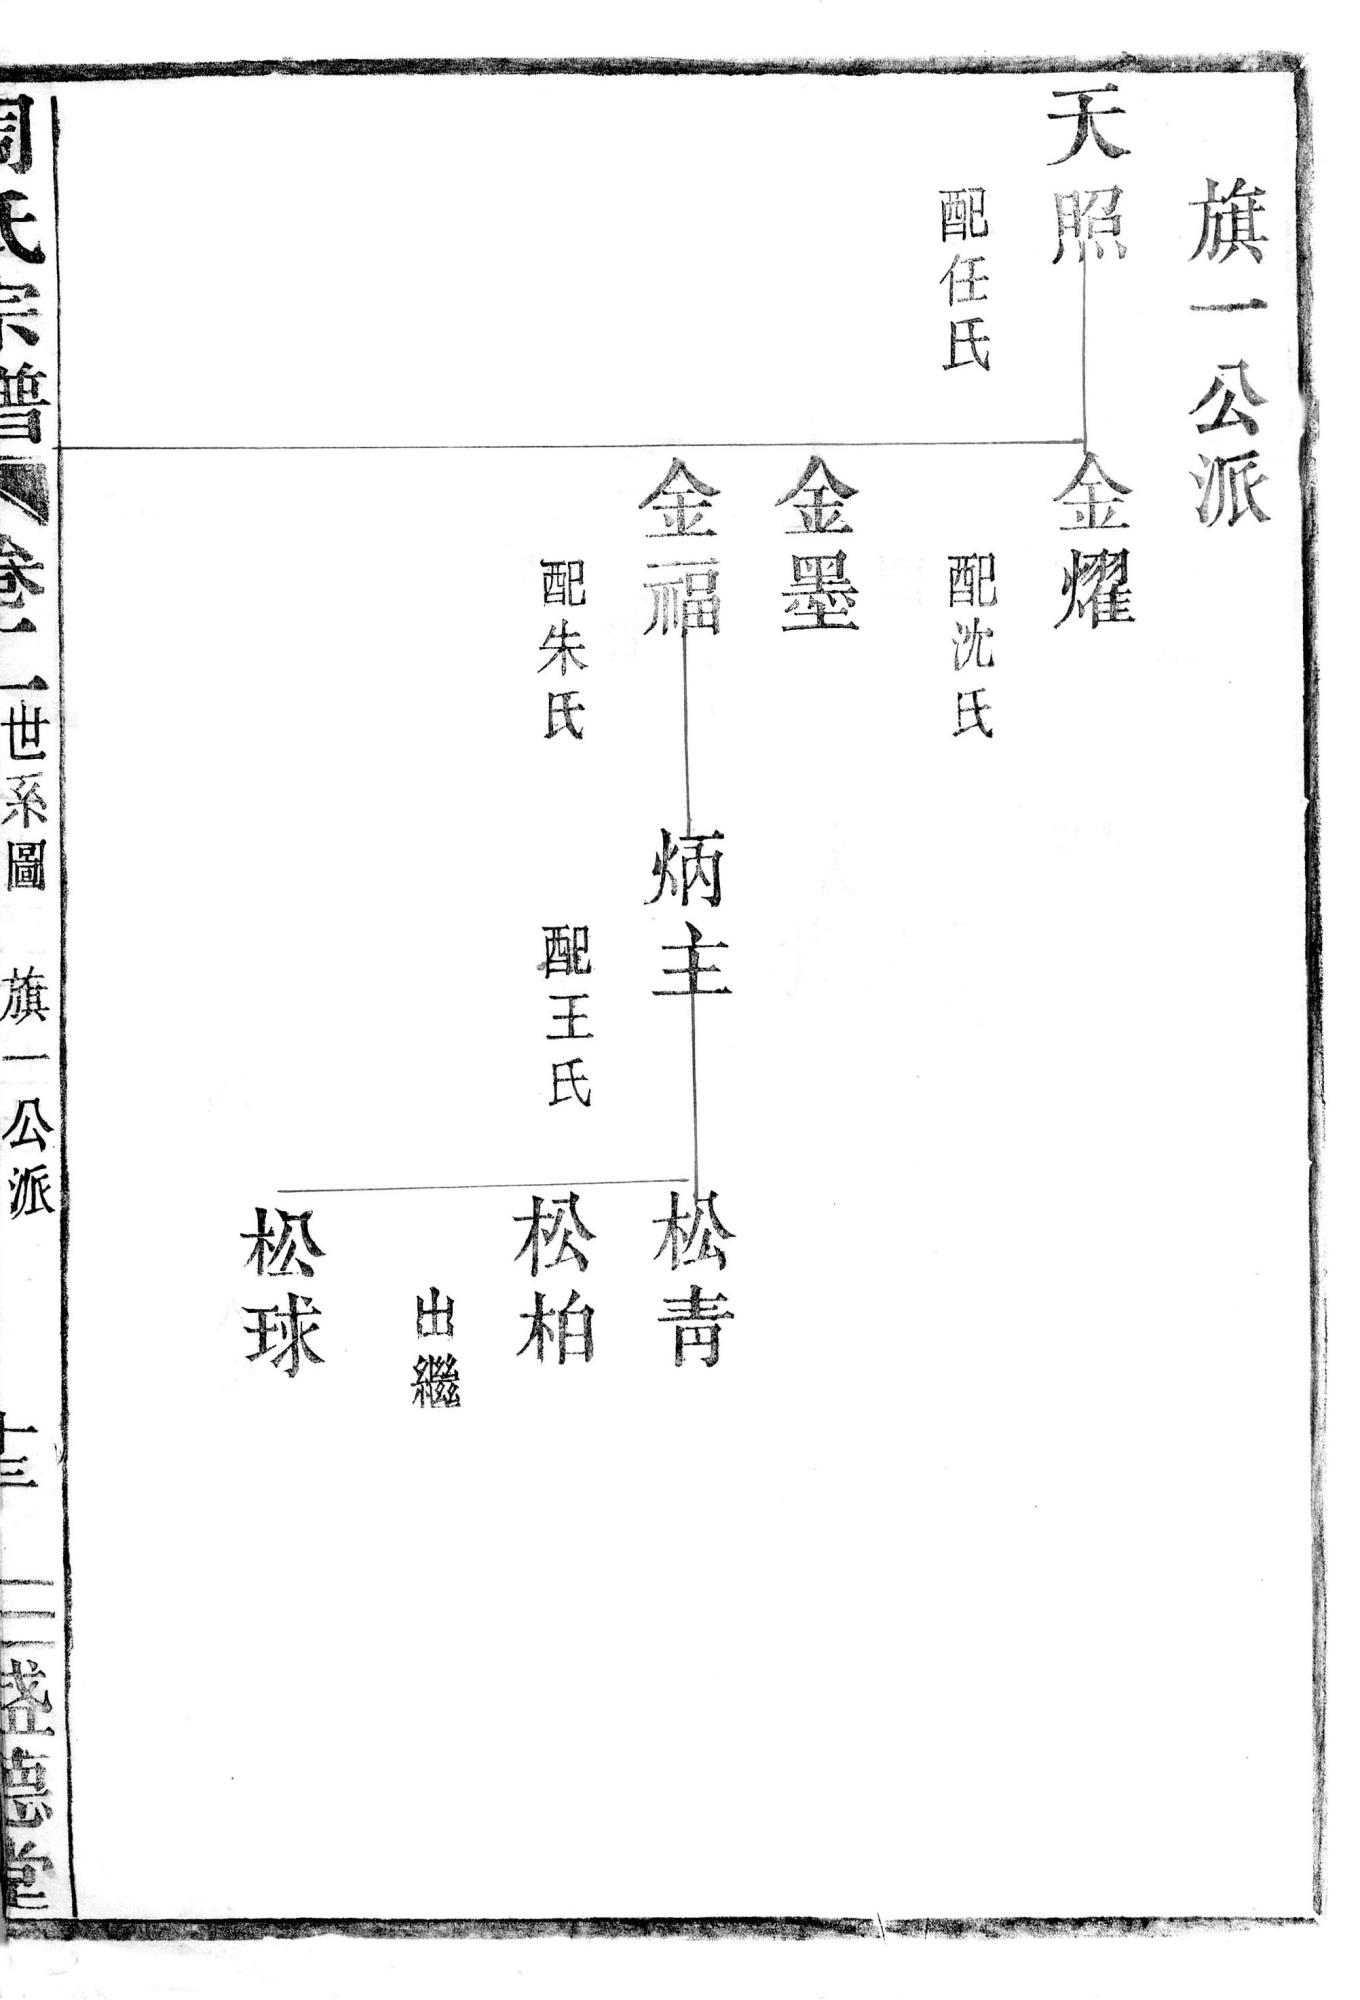 旗一公派
天照
配任氏
金耀
配沈氏
金墨
金福
配朱氏
炳主
配王氏
松青
松柏
出繼
松球
周氏宗譜
卷二
世系圖
旗一公派
十三
盛德堂